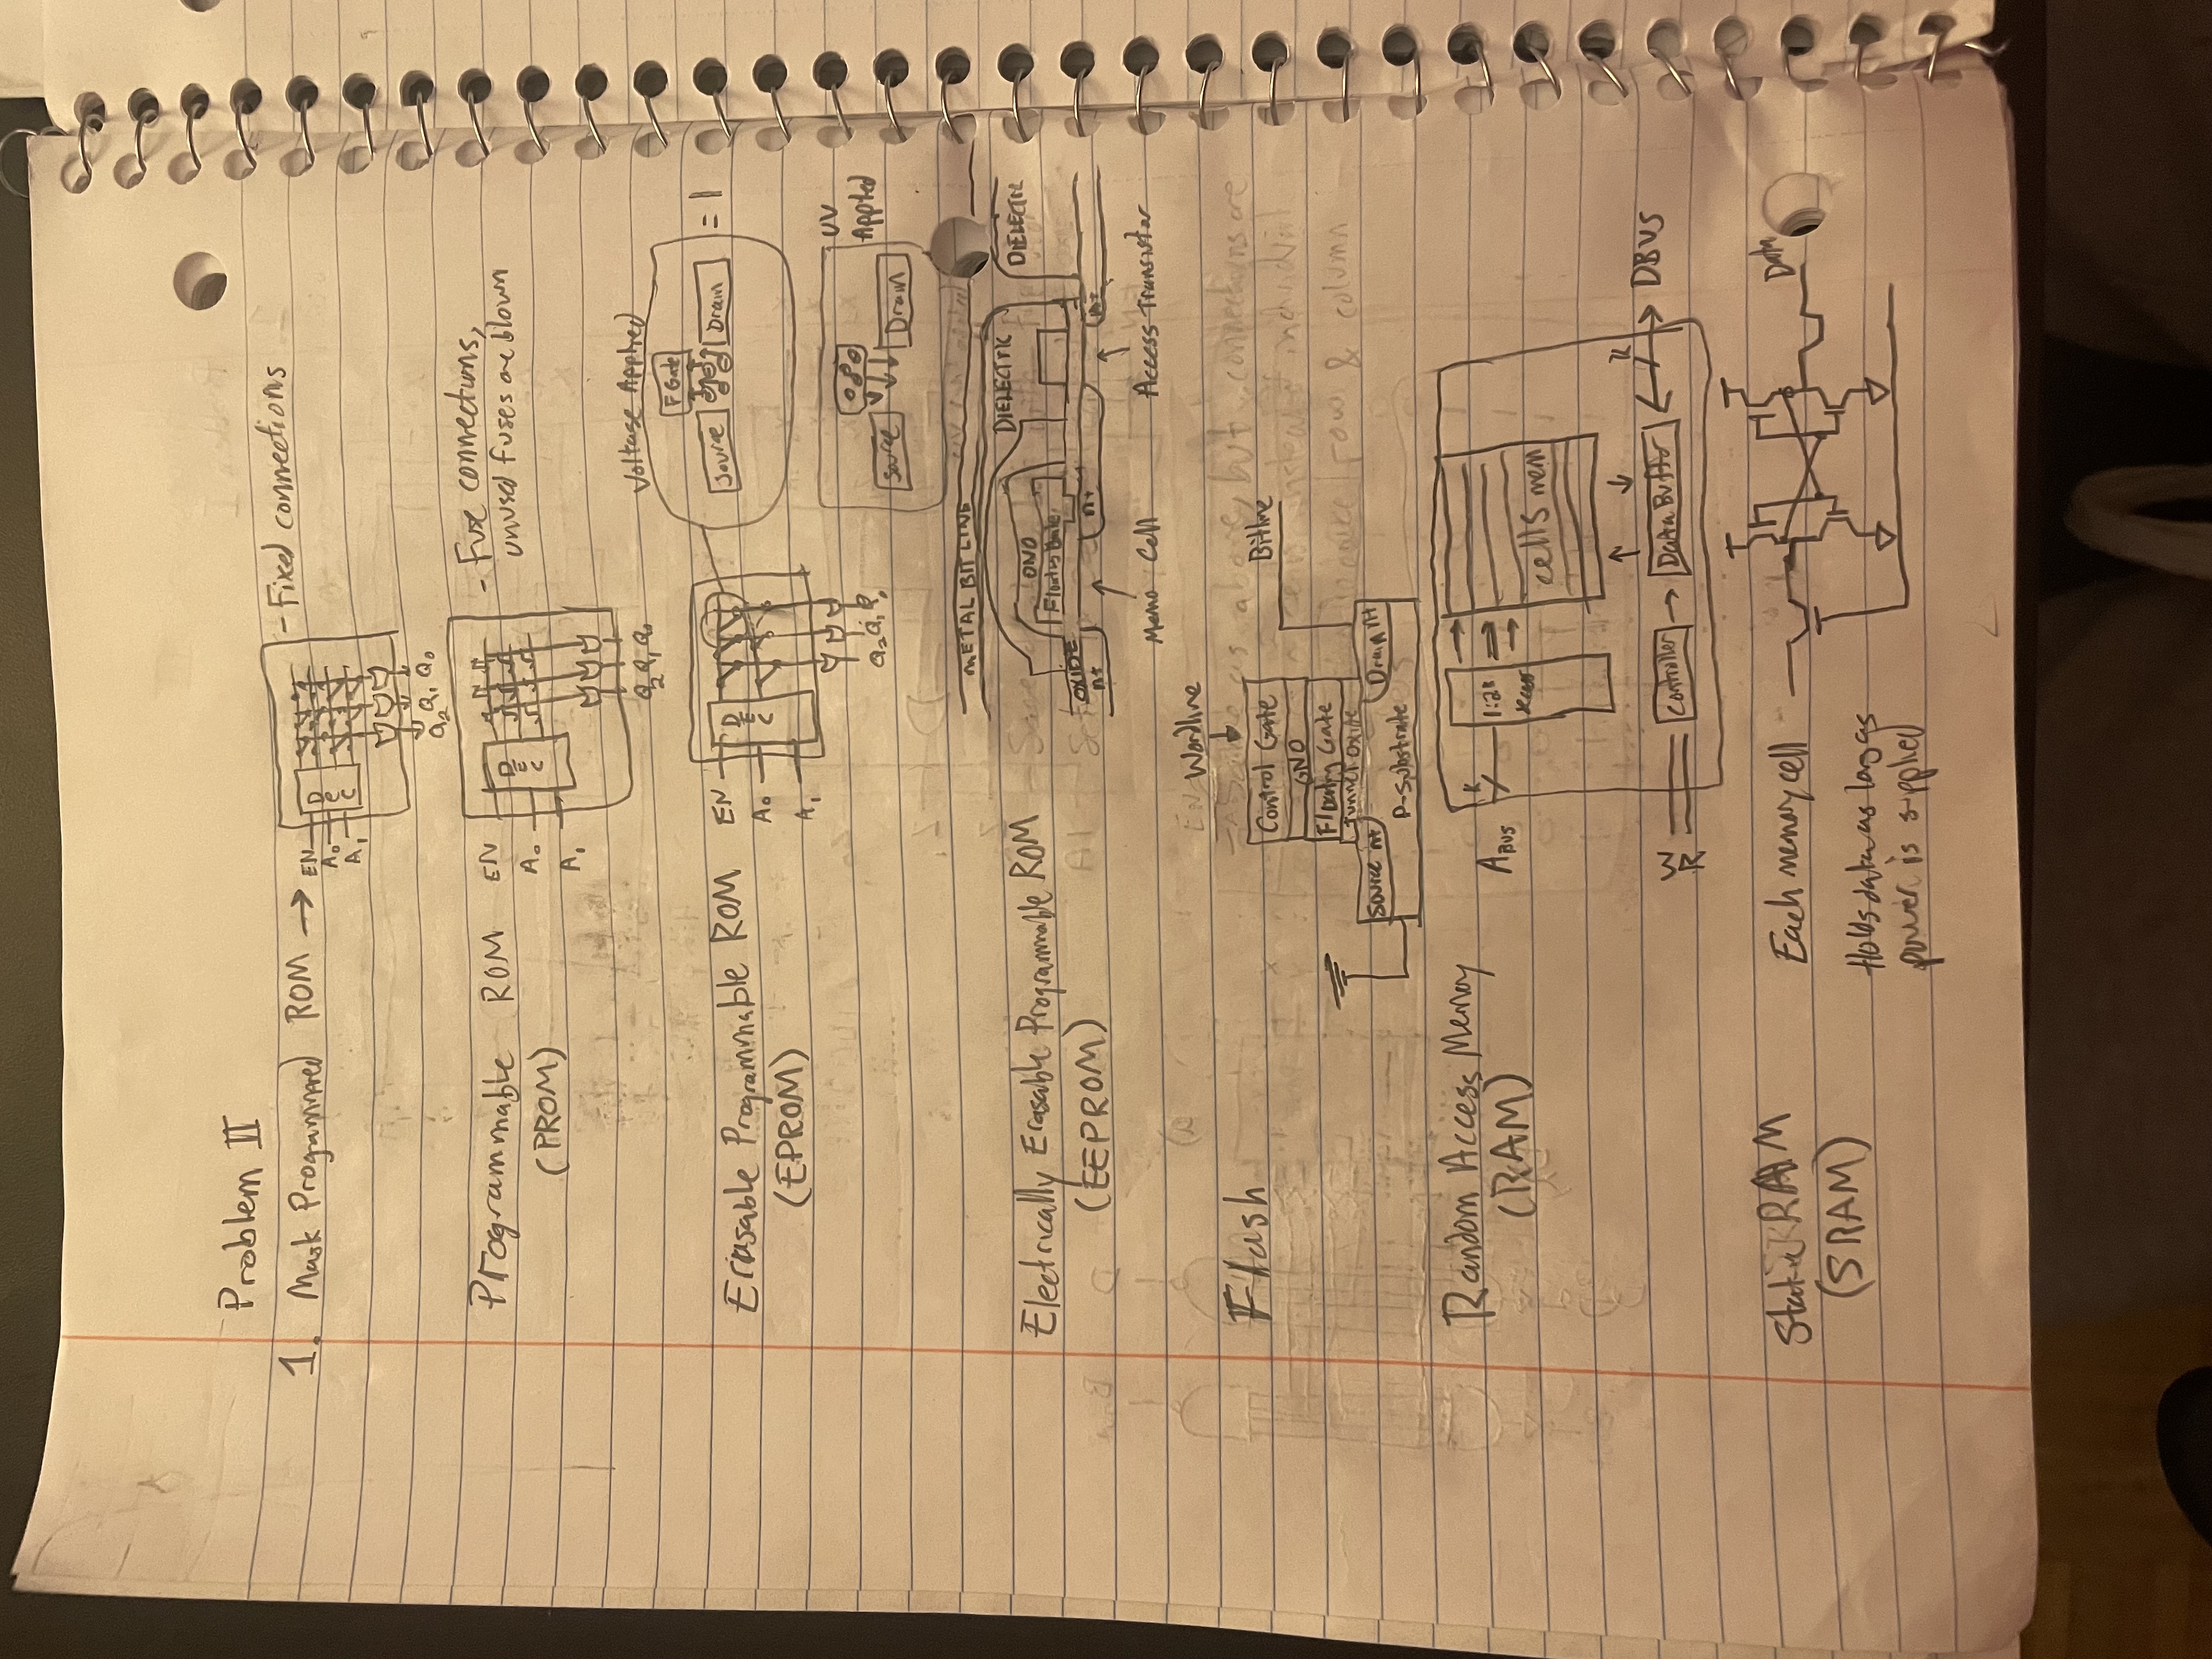 Problem II
1. Mask Programmed ROM → - Fixed connections
EN
A₀
A₁
DEC
Q₂ Q₁ Q₀
Programmable ROM
(PROM)
EN
A₀
A₁
DEC
Q₂ Q₁ Q₀
- Fuse connections,
unused fuses are blown
Erasable Programmable ROM
(EPROM)
EN
A₀
A₁
DEC
Q₂ Q₁ Q₀
Voltage Applied
F Gate
Source Drain = 1
UV
Applied
Source Drain
Electrically Erasable Programmable ROM
(EEPROM)
METAL BIT LINE
DIELECTRIC
ONO
Floating Gate
OXIDE
n+ n+ n+
Memo Cell Access Transistor
Flash
Wordline
Control Gate
Bitline
Floating Gate
Tunnel Oxide
Source n+ Drain n+
P-Substrate
Same as above, but connections are
instead individual
row & column
Random Access Memory
(RAM)
A BUS
K
cells mem
W
R
Controller → Data Buffer
DBUS
Static RAM
(SRAM)
Each memory cell
Data
Holds data as long as
power is supplied